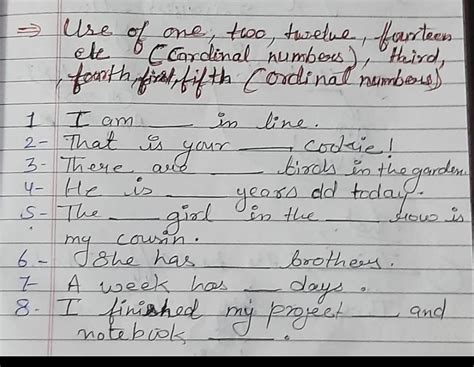 ⇒ Use of one, two, twelve, fourteen
etc (Cardinal numbers), third,
, fourth, first, fifth (ordinal numbers)
1 I am ___ in line.
2- That is your ___ cookie!
3- There are ___ birds in the garden.
4- He is ___ years old today.
5- The ___ girl in the ___ row is
my cousin.
6.- She has ___ brothers.
7- A week has ___ days.
8. I finished my project ___ and
notebook ___.